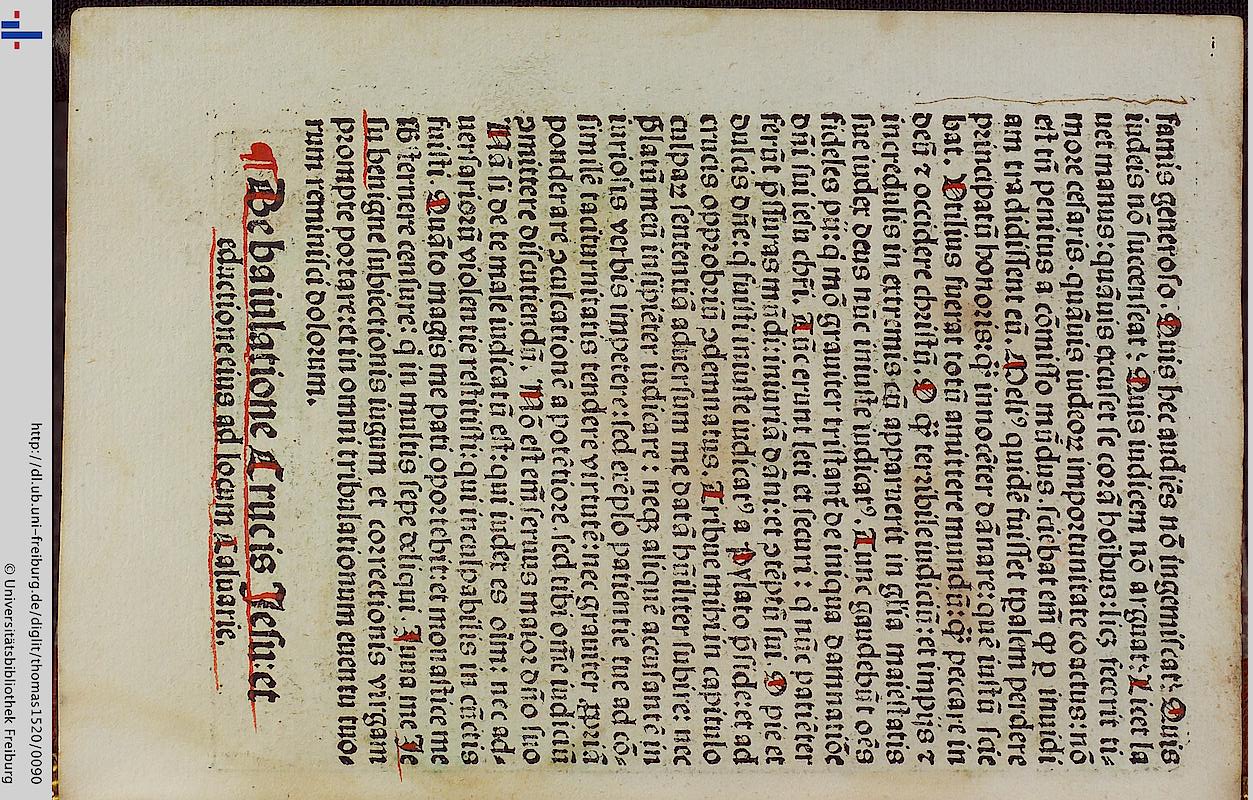 famis generoso. Quis hec audiēs nō ingemiscat: Quis
iudeis nō succenseat: Quis iudicem nō arguat: Licet la
uet manus: quāuis excuset se corā hoībus: licꝫ fecerit ti⸗
more cesaris. quāuis iudeoꝝ importunitate coactus: nō
est tn̄ penitus a cōmisso mūdus. sciebat em̄ ꝙ ꝑ inuidi
am tradidissent eū. Meliꝰ quidē fuisset tꝑalem perdere
principatū honoris: q̄ꝫ innocēter dānare: quē iustū scie
bat. Utilius fuerat totū amittere mundū: q̄ꝫ peccare in
deū ⁊ occidere christū. O q̄ꝫ terribile iudiciū: et impijs ⁊
incredulis in extremis cū apparuerit in gl̄ia maiestatis
sue iudex deus nūc iniuste iudicatꝰ. Tunc gaudebūt oēs
fideles pij: q̄ mō grauiter tristant̄ de iniqua damnatiōe
dn̄i sui iesu chr̄i. Tūc erunt leti et securi: q̄ nūc patiēter
ferūt p̄ssuras mūdi: iniuriā dāni: et ɔtēptū sui. O pie et
dulcis dn̄e: q̄ fuisti iniuste iudicatꝰ a Pylato p̄side: et ad
crucis opprobriū ɔdemnatus. Tribue mihi in capitulo
culpaꝝ sententiā aduersum me datā hūiliter subire: nec
p̄latū meū insipiēter iudicare: neqꝫ aliquē accusantē in
iuriosis verbis impetere: sed exēplo patientie tue ad cō⸗
similē taciturnitatis tendere virtutē: nec grauiter ꝓpriā
ponderare ɔculcationē a potētiore. sed tibi om̄e iudiciū
ɔmittere discutiendū. Nō est em̄ seruus maior dn̄o suo
Nā si de te male iudicatū est: qui iudex es oīm: nec ad⸗
uersarioꝝ violentie restitisti: qui inculpabilis in cūctis
fuisti. Quāto magis me pati oportebit: et nō nasticē me
temere censure: q̄ in multis sepe deliqui. Iuua me Ie
su benigne subiectionis iugum et correctionis virgam
prompte portare: et in omni tribulationum euentu tuo⸗
rum reminisci dolorum.
¶ De baiulatione Crucis Jesu: et
eductione eius ad locum Caluarie.
http://dl.ub.uni-freiburg.de/diglit/thomas1520/0090
© Universitätsbibliothek Freiburg